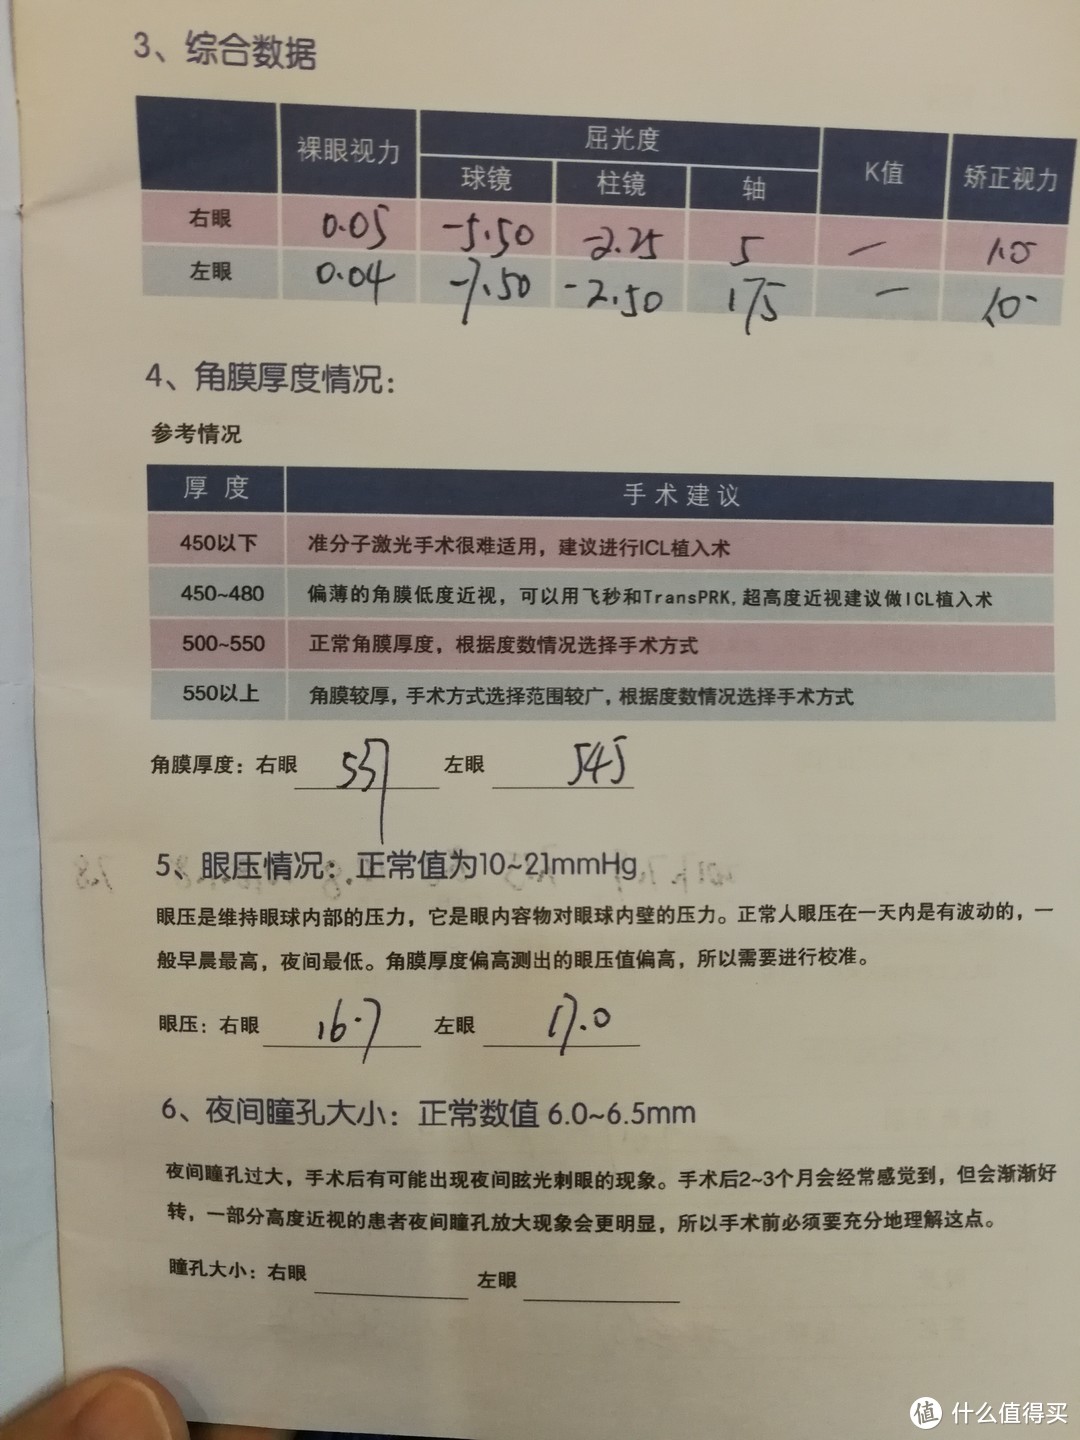 3、综合数据
裸眼视力 屈光度 K值 矫正视力
球镜 柱镜 轴
右眼 0.05 -5.50 -2.25 5 — 1.0
左眼 0.04 -7.50 -2.50 175 — 1.0
4、角膜厚度情况：
参考情况
厚 度 手术建议
450以下 准分子激光手术很难适用，建议进行ICL植入术
450~480 偏薄的角膜低度近视，可以用飞秒和TransPRK,超高度近视建议做ICL植入术
500~550 正常角膜厚度，根据度数情况选择手术方式
550以上 角膜较厚，手术方式选择范围较广，根据度数情况选择手术方式
角膜厚度：右眼 557 左眼 545
5、眼压情况：正常值为10~21mmHg
眼压是维持眼球内部的压力，它是眼内容物对眼球内壁的压力。正常人眼压在一天内是有波动的，一
般早晨最高，夜间最低。角膜厚度偏高测出的眼压值偏高，所以需要进行校准。
眼压：右眼 16.7 左眼 17.0
6、夜间瞳孔大小：正常数值 6.0~6.5mm
夜间瞳孔过大，手术后有可能出现夜间眩光刺眼的现象。手术后2~3个月会经常感觉到，但会渐渐好
转，一部分高度近视的患者夜间瞳孔放大现象会更明显，所以手术前必须要充分地理解这点。
瞳孔大小：右眼 左眼
值 什么值得买